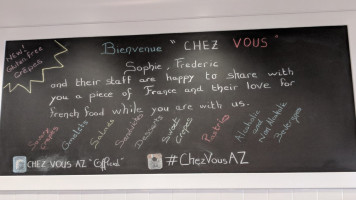 New!
Gluten Free
Crêpes
Bienvenue "CHEZ VOUS"
Sophie, Frederic
and their staff are happy to share with
you a piece of France and their love for
French food while you are with us.
Savory Crêpes
Omelets
Salads
Sandwiches
Desserts
Sweet Crêpes
Pastries
Alcoholic and Non Alcoholic Beverages
CHEZ VOUS AZ "Official"
#ChezVousAZ